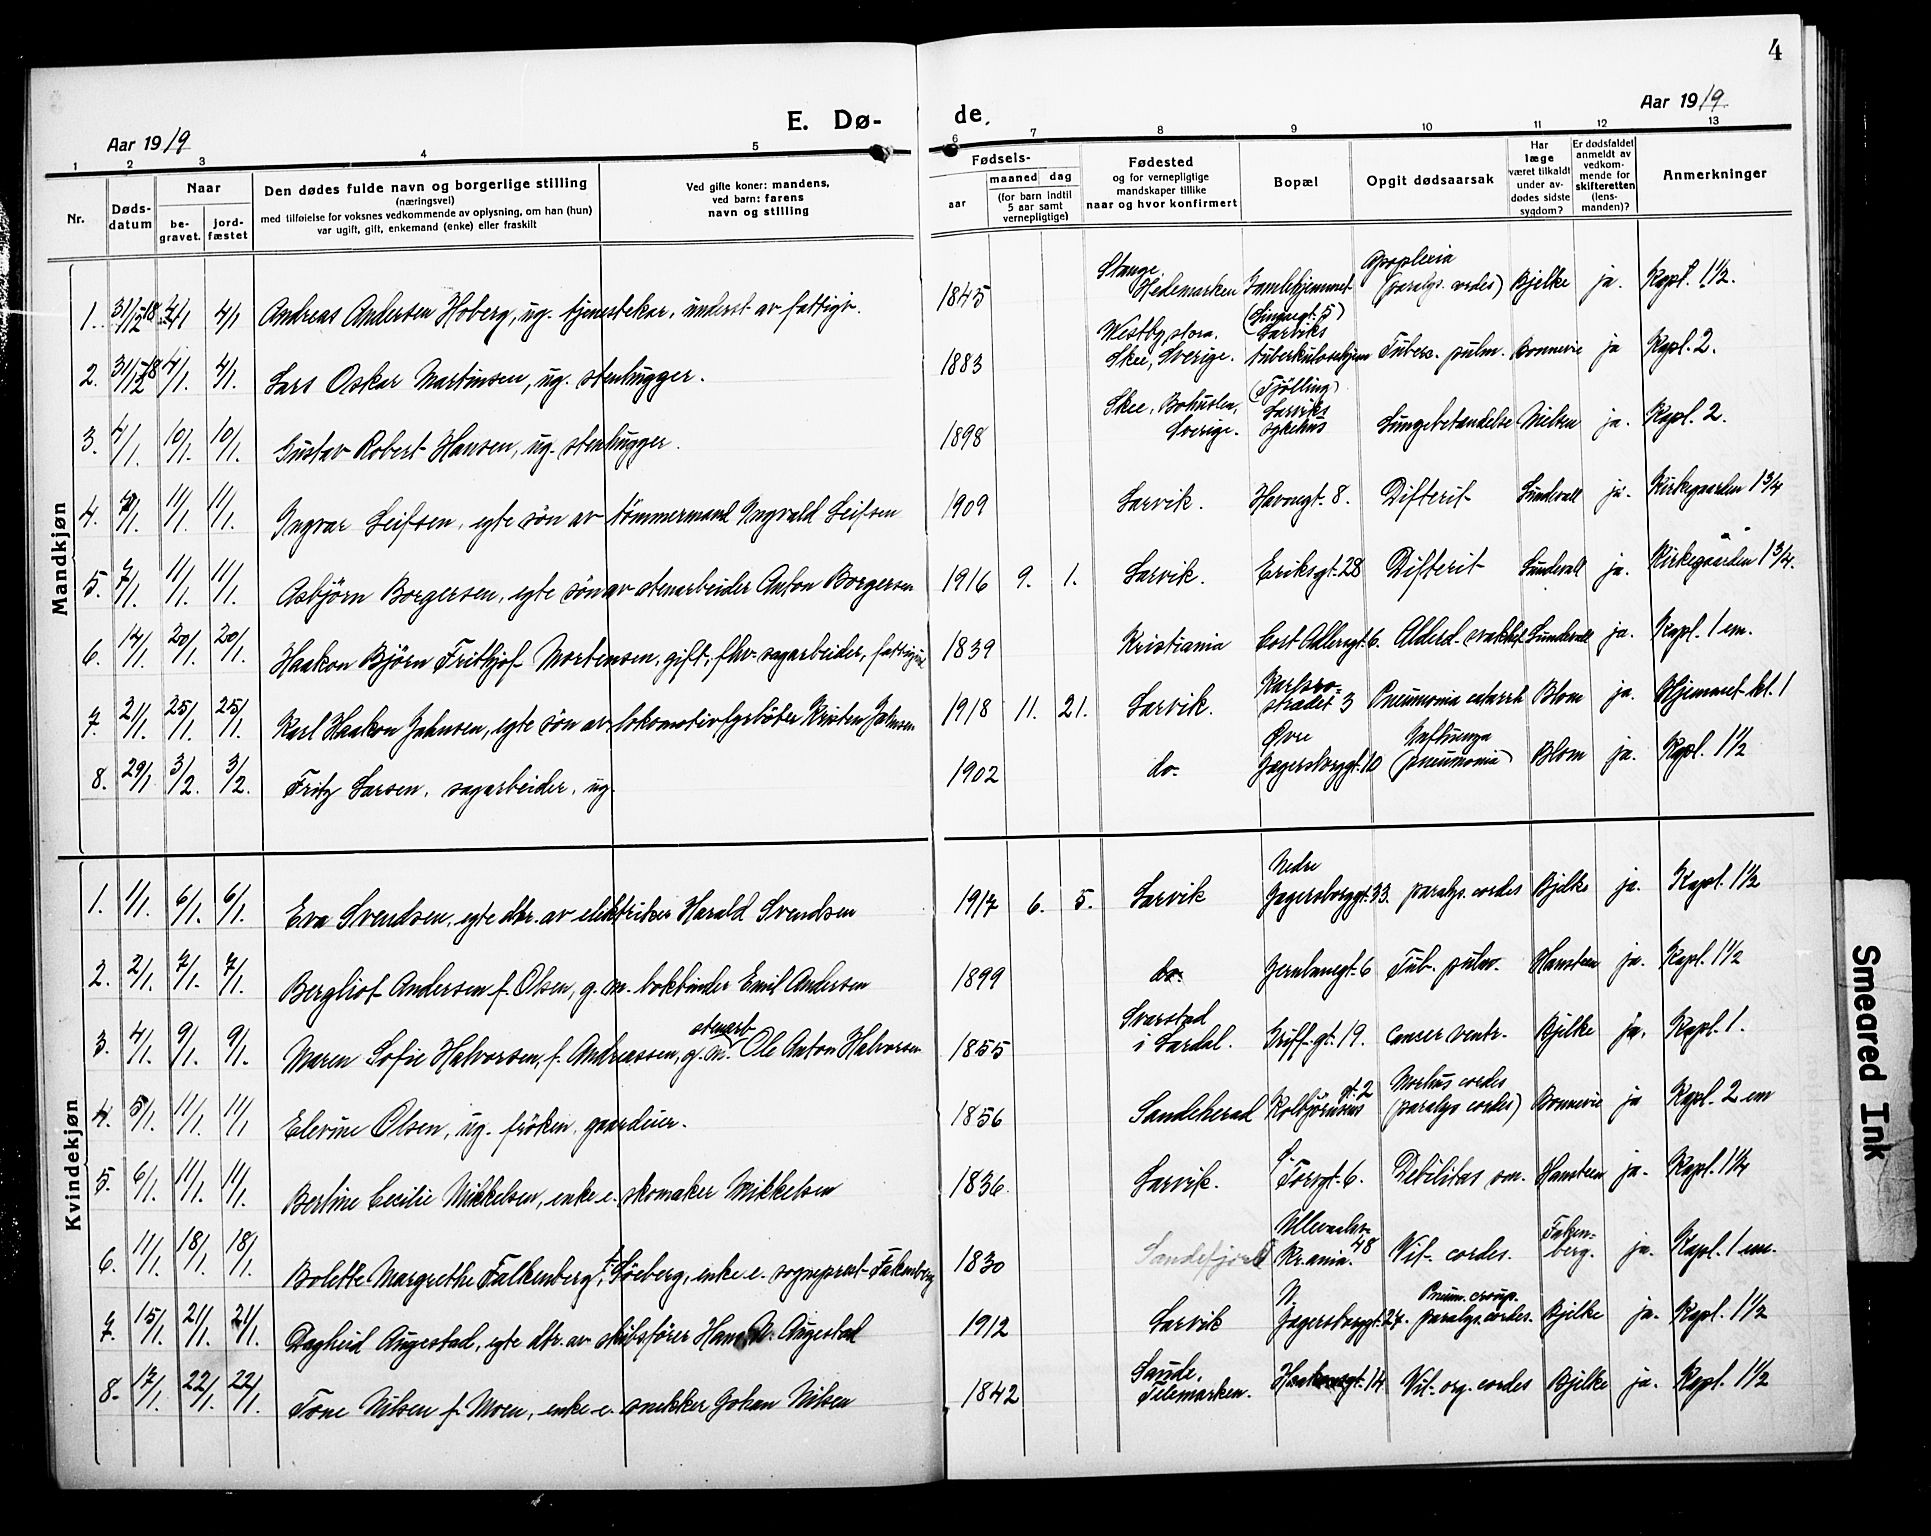 4
Aar 1919
E. Dø-
de.
Aar 1919.
1 2 3 4 5 6 7 8 9 10 11 12 13
Nr.
Døds-
datum
Naar
be-
gravet.
jord-
fæstet
Den dødes fulde navn og borgerlige stilling
(næringsvei)
med tilføielse for voksnes vedkommende av oplysning, om han (hun)
var ugift, gift, enkemand (enke) eller fraskilt
Ved gifte koner: mandens,
ved barn: farens
navn og stilling
Fødsels-
aar
maaned
dag
(for barn indtil
5 aar samt
vernepligtige)
Fødested
og for vernepligtige
mandskaper tillike
naar og hvor konfirmert
Bopæl
Opgit dødsaarsak
Har
læge
været tilkaldt
under av-
dødes sidste
sygdom?
Er dødsfaldet
anmeldt av
vedkom-
mende for
skifteretten
(lens-
manden)?
Anmerkninger
Mandkjøn
1. 31/12-18 4/1 4/1 Andreas Andersen Hoberg, ug. tjenestekar, underst. av fattigv. 1845 Stange, Hedemarken Gamlehjemmet (Lingegt. 5) Apoplexia (paralys. cordis) Bjelke ja. Kapl. 1 1/2.
2. 31/12-18 4/1. 4/1. Lars Oskar Martinsen, ug. stenhugger. 1883 Westby stora. Skee, Sverige. Larviks tuberkulosehjem (Tjølling) Tuberc. pulm. Bonnevie ja Kapl. 2.
3. 4/1. 10/1. 10/1. Gustav Robert Hansen, ug. stenhugger. 1898 Skee, Bohuslen, Sverige. Larviks sykehus Lungebetændelse Nielsen ja. Kapl. 2.
4. 7/1. 11/1. 11/1. Ingvar Leifsen, egte søn av tømmermand Ingvald Leifsen 1909 Larvik. Havnegt. 8. Difterit Sundevall ja. Kirkegaarden 1 3/4
5. 7/1. 11/1. 11/1. Asbjørn Borgersen, egte søn av stenarbeider Anton Borgersen 1916 9. 1. Larvik. Eriksgt. 28 Difterit Sundevall ja. Kirkegaarden 1 3/4.
6. 14/1. 20/1. 20/1. Haakon Bjørn Frithjof Mortensen, gift, fhv. sagarbeider, 1839 Kristiania Cort Adlersgt. 6. Alderd. svakhet Sundevall ja. Kapl. 1 em.
7. 21/1. 25/1. 25/1. Karl Haakon Jahnsen, egte søn av lokomotivfyrbøter Kristen Jahnsen 1918 11. 21. Larvik. Karlsro- strædet 3 Pneumonia catarrh Blom ja. Hjemmet kl. 1
8. 29/1. 3/2. 3/2. Fritz Larsen, sagarbeider, ug. 1902 do. Øvre Jegersborggt. 10 Influenza (pneumonia) Blom ja. Kapl. 1 1/2
Kvindekjøn
1. 1/1. 6/1. 6/1. Eva Svendsen, egte dtr. av elektriker Harald Svendsen 1917 6. 5. Larvik Nedre Jegersborggt. 33. paralys. cordis Bjelke ja. Kapl. 1 1/2
2. 2/1. 7/1. 7/1. Bergliot Andersen f. Olsen, g. m. bokbinder Emil Andersen 1899 do. Jernbanegt. 6 Tub. pulm. Hansteen ja. Kapl. 1 1/2
3. 4/1. 9/1. 9/1. Maren Sofie Halvorsen, f. Andreassen, g. m. stenarb. Ole Anton Halvorsen 1855 Svarstad i Lardal. Griff. gt. 19. Cancer ventr. Bjelke ja. Kapl. 1.
4. 5/1. 11/1. 11/1 Elevine Olsen, ug. frøken, gaardeier. 1856 Sandeherad Kolbjørnsens gt. 2 Morbus cordis (paralys cordis) Bonnevie ja Kapl. 2 em
5. 6/1. 11/1. 11/1. Bertine Cecilie Mikkelsen, enke e. skomaker Mikkelsen 1836. Larvik. L. Torvgt. 6. Debilitas sen. Hansteen ja. Kapl. 1 1/4
6. 11/1. 18/1. 18/1. Bolette Margrethe Falkenberg, f. Søeberg, enke e. sogneprest Falkenberg 1830 Sandefjord Ullevaalsv. 48 Kr.ania. Vit. cordis. Falken- berg. ja. Kapl. 1 em.
7. 15/1. 21/1. 21/1. Dagheid Augestad, egte dtr. av skibsfører Hans A. Augestad 1912 Larvik N. Jegersborggt. 24. Pneum. croup. paralys. cordis. Bjelke ja. Kapl. 1 1/2
8. 17/1. 22/1. 22/1. Tone Nilsen f. Moen, enke e. snekker Johan Nilsen 1842 Saude, Telemarken. Haakonsgt. 14 Vit. org. cordis Bjelke ja. Kapl. 1 1/2
Smeared Ink